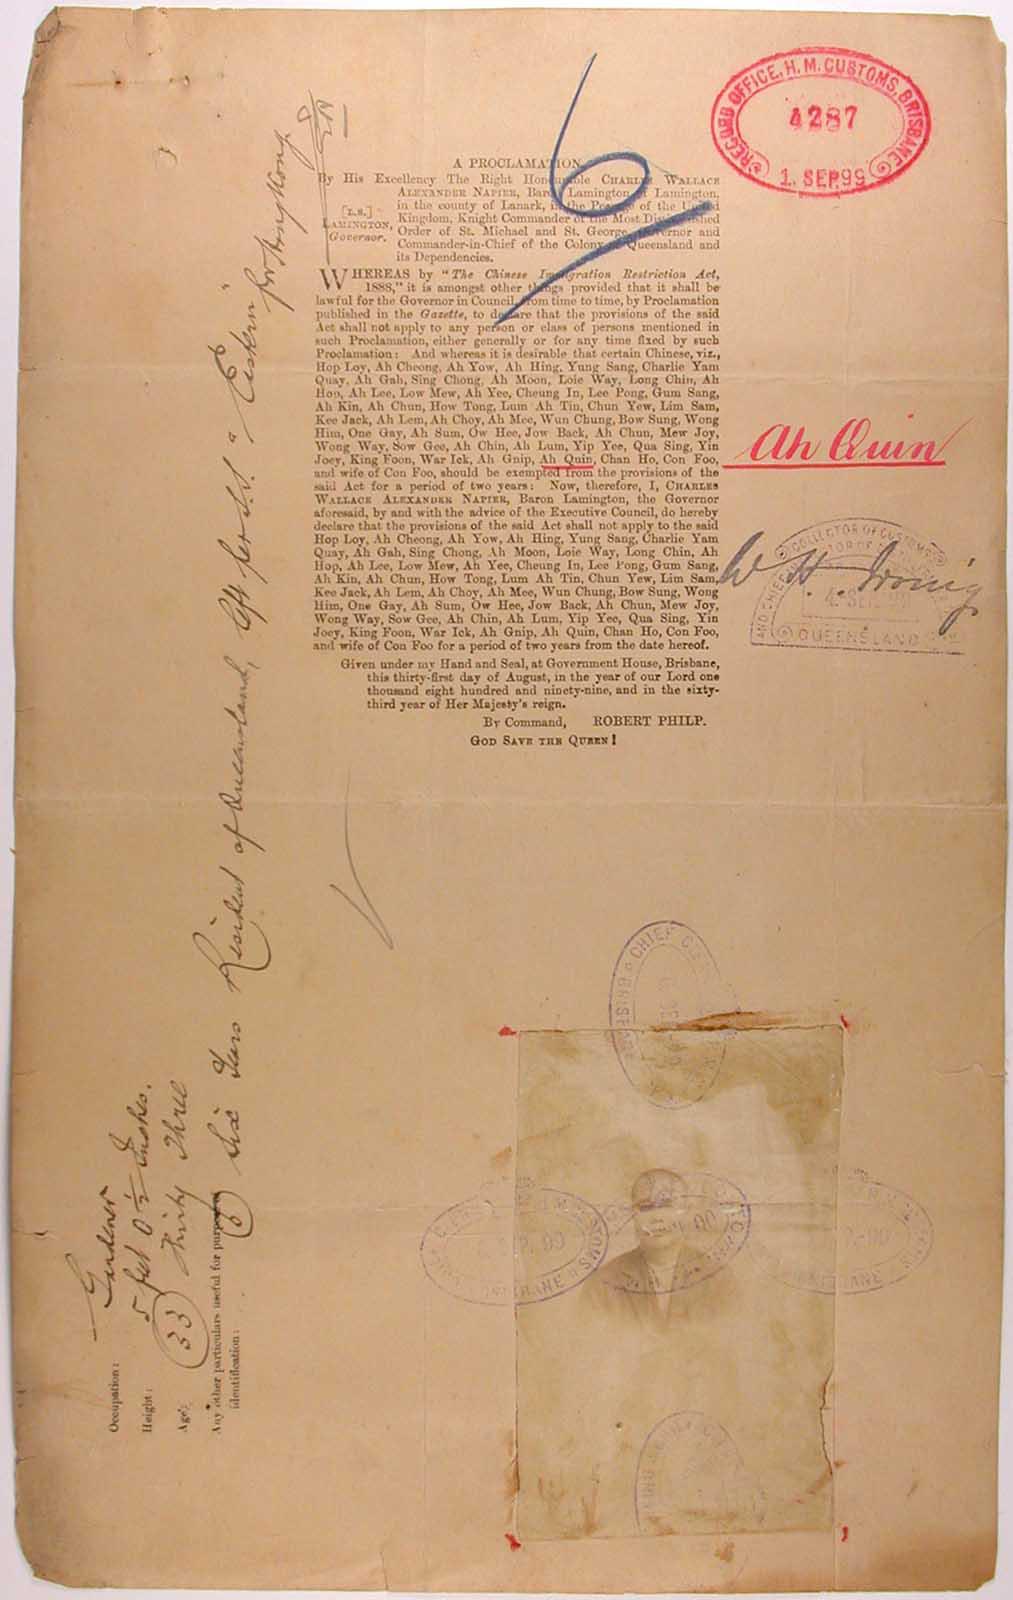 RECORD OFFICE, H. M. CUSTOMS, BRISBANE
4287
1. SEP.99
6
A PROCLAMATION
By His Excellency The Right Honourable CHARLES WALLACE
ALEXANDER NAPIER, Baron Lamington of Lamington,
in the county of Lanark, in the Peerage of the United
[L.S.]
Kingdom, Knight Commander of the Most Distinguished
LAMINGTON,
Order of St. Michael and St. George, Governor and
Governor.
Commander-in-Chief of the Colony of Queensland and
its Dependencies.
WHEREAS by "The Chinese Immigration Restriction Act,
1888," it is amongst other things provided that it shall be
lawful for the Governor in Council, from time to time, by Proclamation
published in the Gazette, to declare that the provisions of the said
Act shall not apply to any person or class of persons mentioned in
such Proclamation, either generally or for any time fixed by such
Proclamation: And whereas it is desirable that certain Chinese, viz.,
Hop Loy, Ah Cheong, Ah Yow, Ah Hing, Yung Sang, Charlie Yam
Quay, Ah Gah, Sing Chong, Ah Moon, Loie Way, Long Chin, Ah
Hop, Ah Lee, Low Mew, Ah Yee, Cheung In, Lee Pong, Gum Sang,
Ah Kin, Ah Chun, How Tong, Lum Ah Tin, Chun Yew, Lim Sam,
Kee Jack, Ah Lem, Ah Choy, Ah Mee, Wun Chung, Bow Sung, Wong
Him, One Gay, Ah Sum, Ow Hee, Jow Back, Ah Chun, Mew Joy,
Wong Way, Sow Gee, Ah Chin, Ah Lum, Yip Yee, Qua Sing, Yin
Joey, King Foon, War Ick, Ah Gnip, Ah Quin, Chan Ho, Con Foo,
and wife of Con Foo, should be exempted from the provisions of the
said Act for a period of two years: Now, therefore, I, CHARLES
WALLACE ALEXANDER NAPIER, Baron Lamington, the Governor
aforesaid, by and with the advice of the Executive Council, do hereby
declare that the provisions of the said Act shall not apply to the said
Hop Loy, Ah Cheong, Ah Yow, Ah Hing, Yung Sang, Charlie Yam
Quay, Ah Gah, Sing Chong, Ah Moon, Loie Way, Long Chin, Ah
Hop, Ah Lee, Low Mew, Ah Yee, Cheung In, Lee Pong, Gum Sang,
Ah Kin, Ah Chun, How Tong, Lum Ah Tin, Chun Yew, Lim Sam,
Kee Jack, Ah Lem, Ah Choy, Ah Mee, Wun Chung, Bow Sung, Wong
Him, One Gay, Ah Sum, Ow Hee, Jow Back, Ah Chun, Mew Joy,
Wong Way, Sow Gee, Ah Chin, Ah Lum, Yip Yee, Qua Sing, Yin
Joey, King Foon, War Ick, Ah Gnip, Ah Quin, Chan Ho, Con Foo,
and wife of Con Foo for a period of two years from the date hereof.
Given under my Hand and Seal, at Government House, Brisbane,
this thirty-first day of August, in the year of our Lord one
thousand eight hundred and ninety-nine, and in the sixty-
third year of Her Majesty's reign.
By Command, ROBERT PHILP.
GOD SAVE THE QUEEN!
Ah Quin
COLLECTOR OF CUSTOMS
QUEENSLAND
W H Irving
Occupation: Gardener
Height: 5 feet 0 ½ Inches.
Age: (33) Thirty Three
Any other particulars useful for purpose of
identification: (6) Six Years Resident of Queensland, left per S.S. "
for Hong Kong.